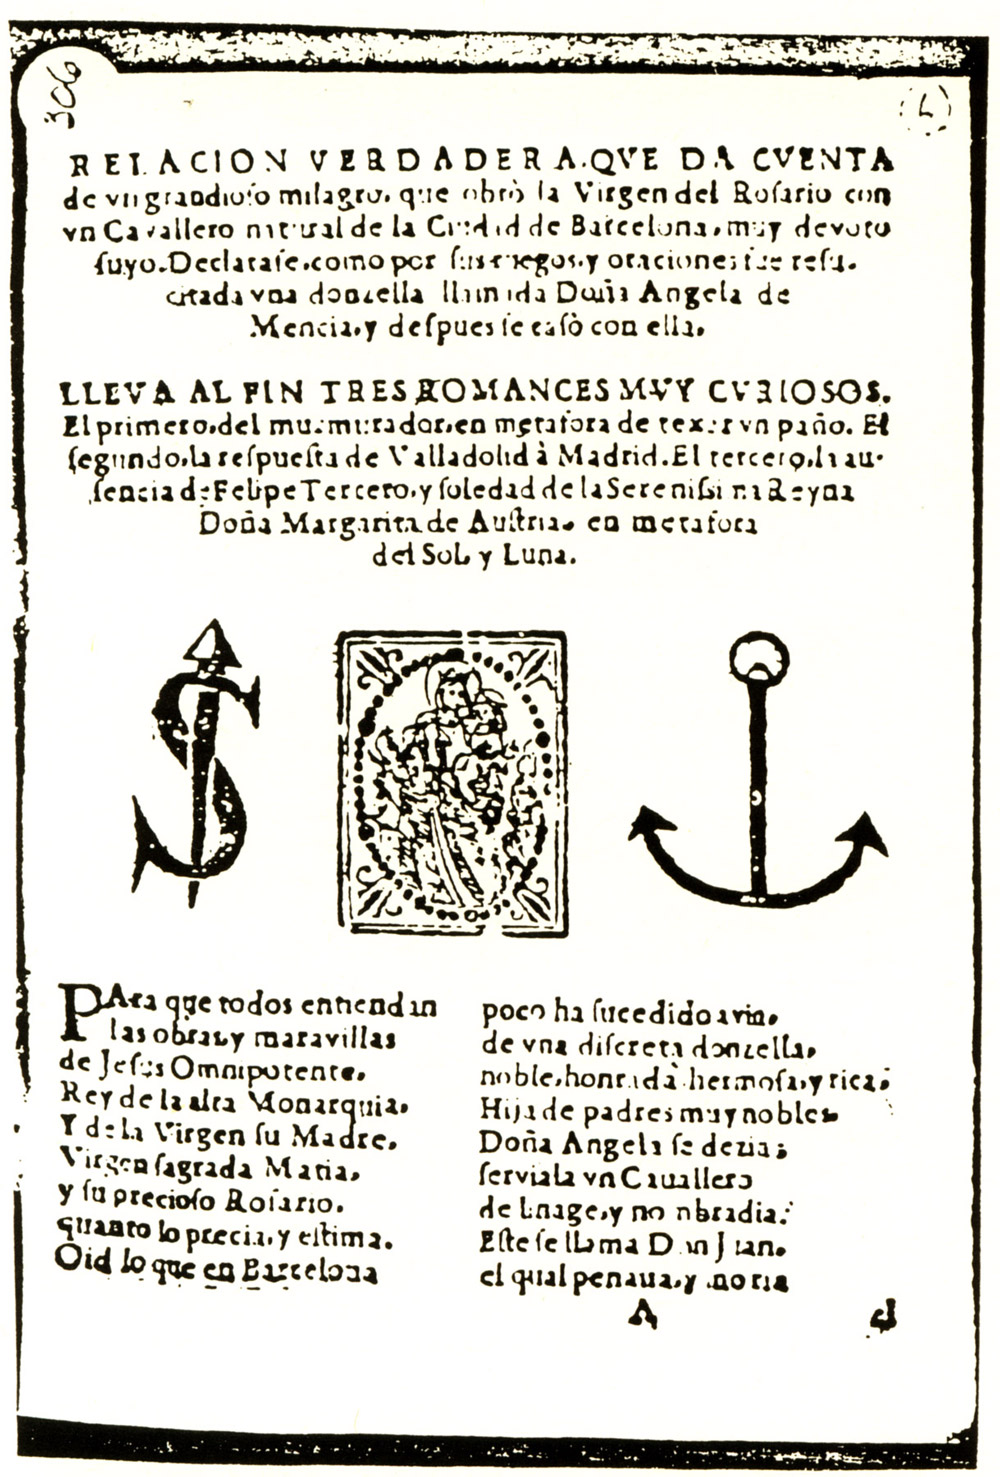 306
L
RELACION VERDADERA.QVE DA CVENTA
de vn grandioſo milagro, que obrò la Virgen del Roſario con
vn Cavallero natural de la Ciudad de Barcelona, muy devoto
ſuyo. Declaraſe, como por ſus ruegos, y oraciones fue reſu-
citada vna donzella llamada Doña Angela de
Mencia, y deſpues ſe caſò con ella.
LLEVA AL FIN TRES ROMANCES MVY CVRIOSOS.
El primero, del murmurador, en metafora de texer vn paño. El
ſegundo, la reſpueſta de Valladolid à Madrid. El tercero, la au-
ſencia de Felipe Tercero, y ſoledad de la Sereniſsima Reyna
Doña Margarita de Auſtria, en metafora
del Sol, y Luna.
PAra que todos entiendan
las obras, y maravillas
de Jeſus Omnipotente,
Rey de la alta Monarquia,
Y de la Virgen ſu Madre,
Virgen ſagrada Maria,
y ſu precioſo Roſario,
quanto lo precia, y eſtima.
Oid lo que en Barcelona
poco ha ſucedido avia,
de vna diſcreta donzella,
noble, honrada, hermoſa, y rica,
Hija de padres muy nobles
Doña Angela ſe dezia;
ſerviala vn Cauallero
de linage, y no
Eſte ſe llama Don Juan,
el qual penaua, y moria
A